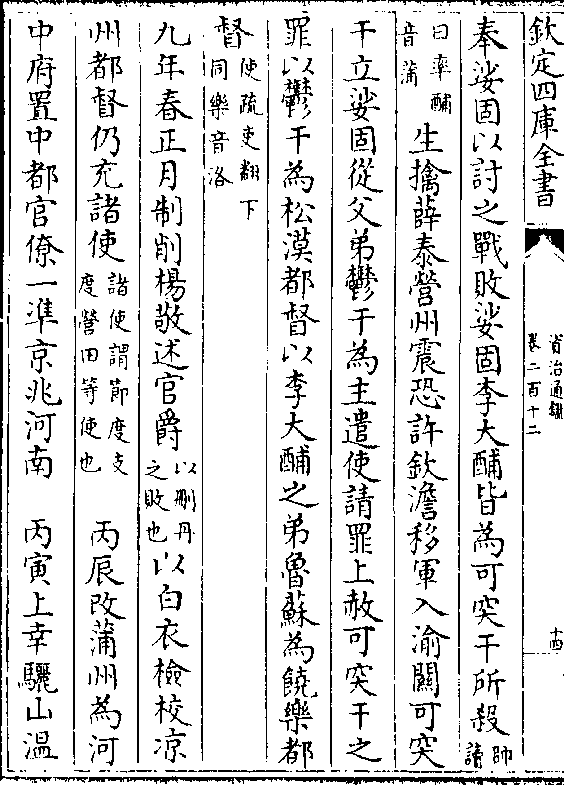 欽定四庫全書
資治通鑑
卷二百十二
十四
奉娑固以討之戰敗娑固李大酺皆為可突干所殺帥讀
曰率酺音蒲生擒薛泰營州震恐許欽澹移軍入渝關可突
干立娑固從父弟鬱干為主遣使請罪上赦可突干之
罪以鬱干為松漠都督以李大酺之弟魯蘇為饒樂都
督使疏吏翻下同樂音洛
九年春正月制削楊敬述官爵以刪丹之敗也以白衣檢校凉
州都督仍充諸使諸使謂節度支度營田等使也 丙辰改蒲州為河
中府置中都官僚一準京兆河南 丙寅上幸驪山溫